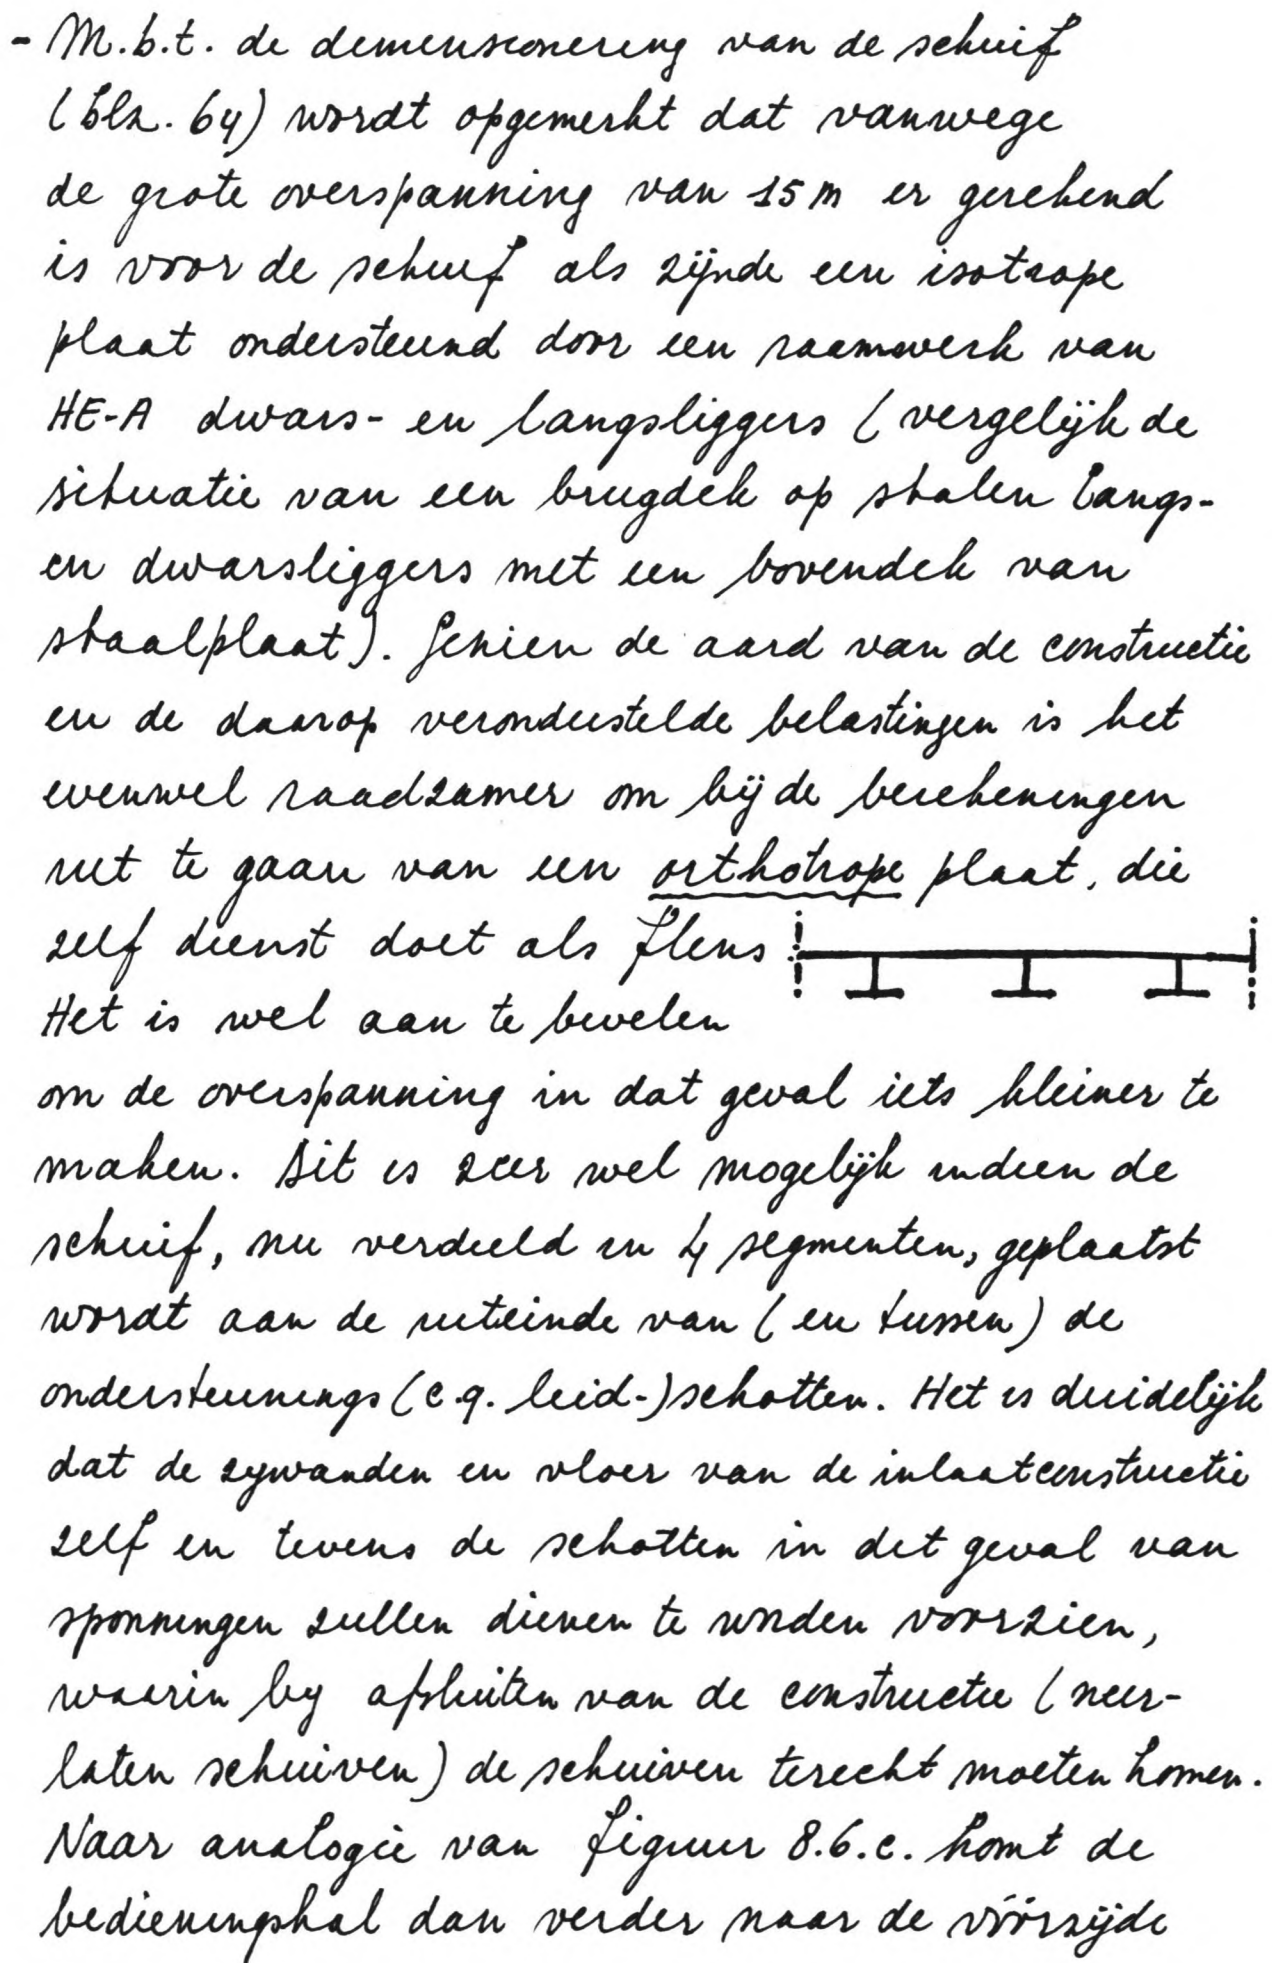 - M.b.t. de dimensionering van de schuif
(blz. 64) wordt opgemerkt dat vanwege
de grote overspanning van 15 m er gerekend
is voor de schuif als zijnde een isotrope
plaat ondersteund door een raamwerk van
HE-A dwars- en langsliggers (vergelijk de
situatie van een brugdek op stalen langs-
en dwarsliggers met een bovendek van
staalplaat). Gezien de aard van de constructie
en de daarop veronderstelde belastingen is het
evenwel raadzamer om bij de berekeningen
uit te gaan van een orthotrope plaat, die
zelf dienst doet als flens
Het is wel aan te bevelen
om de overspanning in dat geval iets kleiner te
maken. Dit is zeer wel mogelijk indien de
schuif, nu verdeeld in 4 segmenten, geplaatst
wordt aan de uiteinde van (en tussen) de
ondersteunings (c.q. leid-)schotten. Het is duidelijk
dat de zijwanden en vloer van de inlaatconstructie
zelf en tevens de schotten in dit geval van
sponningen zullen dienen te worden voorzien,
waarin bij afsluiten van de constructie (neer-
laten schuiven) de schuiven terecht moeten komen.
Naar analogie van figuur 8.6.c. komt de
bedieningshal dan verder naar de vóórzijde